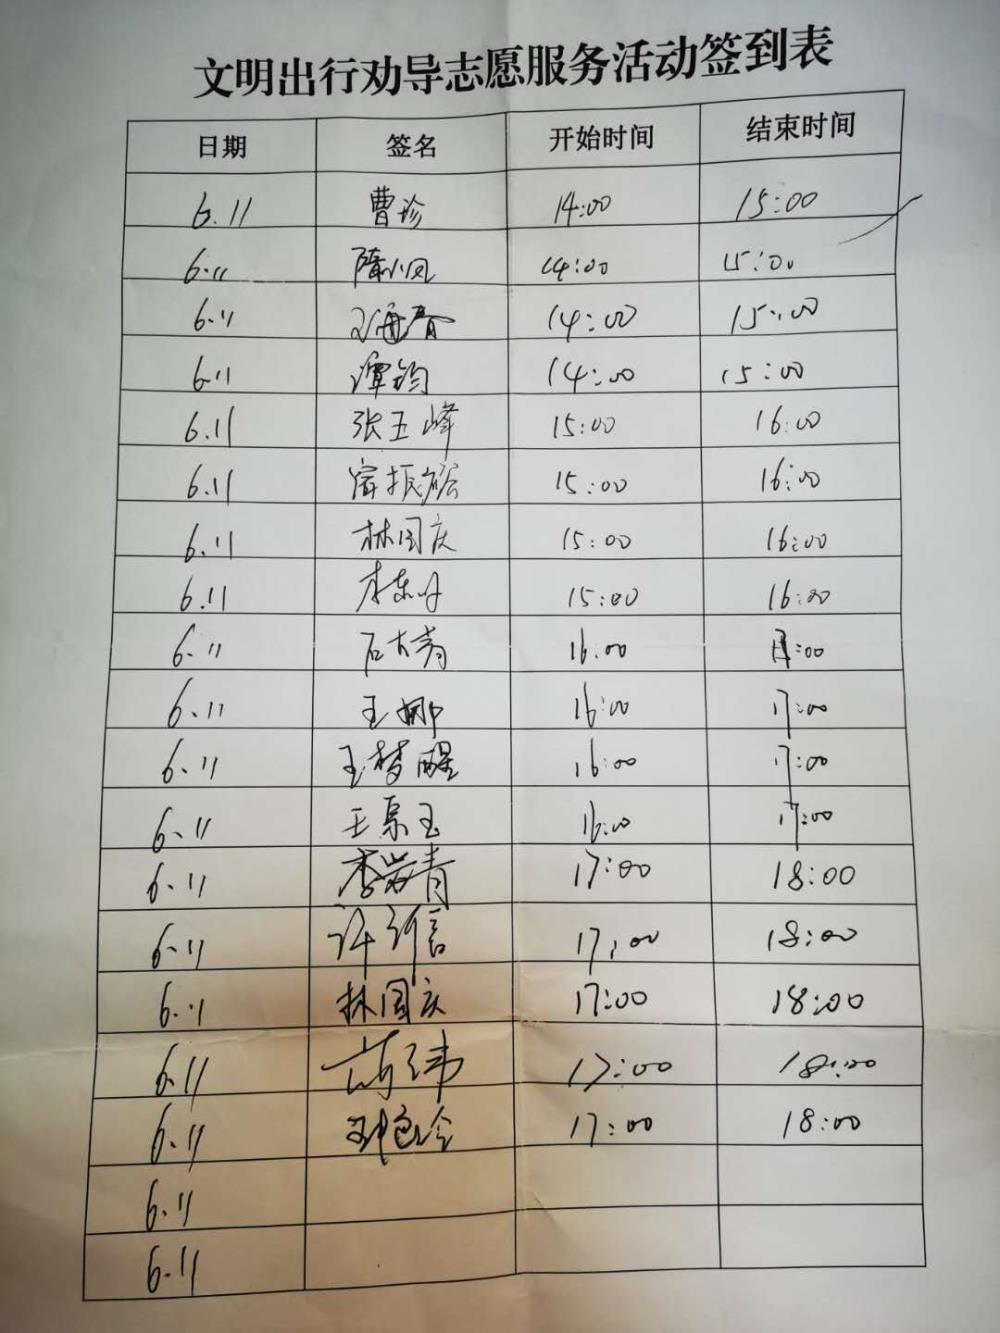 文明出行劝导志愿服务活动签到表
日期 签名 开始时间 结束时间
6.11 曹珍 14:00 15:00
6.11 隋小凤 14:00 15:00
6.11 14:00 15:00
6.11 谭钧 14:00 15:00
6.11 张玉峰 15:00 16:00
6.11 15:00 16:00
6.11 林国庆 15:00 16:00
6.11 15:00 16:00
6.11 16:00 17:00
6.11 王娜 16:00 17:00
6.11 王梦醒 16:00 17:00
6.11 16:00 17:00
6.11 李岩青 17:00 18:00
6.11 17:00 18:00
6.11 林国庆 17:00 18:00
6.11 17:00 18:00
6.11 17:00 18:00
6.11
6.11